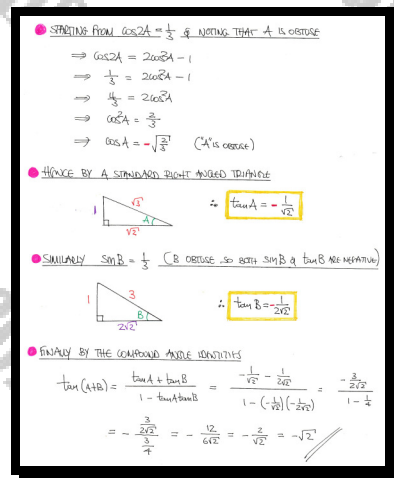 STARTING FROM cos2A = 1/3 & NOTING THAT A IS OBTUSE
⇒ cos2A = 2cos²A − 1
⇒ 1/3 = 2cos²A − 1
⇒ 4/3 = 2cos²A
⇒ cos²A = 2/3
⇒ cosA = −√(2/3) ("A" IS OBTUSE)
HENCE BY A STANDARD RIGHT ANGLED TRIANGLE
1 √3 A √2 ∴ tanA = − 1/√2
SIMILARLY sinB = 1/3 (B OBTUSE SO BOTH sinB & tanB ARE NEGATIVE)
1 3 B 2√2 ∴ tanB = − 1/(2√2)
FINALLY BY THE COMPOUND ANGLE IDENTITIES
tan(A+B) = (tanA + tanB)/(1 − tanAtanB) = (−1/√2 − 1/(2√2))/(1 − (−1/√2)(−1/(2√2))) = (−3/(2√2))/(1 − 1/4)
= − (3/(2√2))/(3/4) = − 12/(6√2) = − 2/√2 = −√2